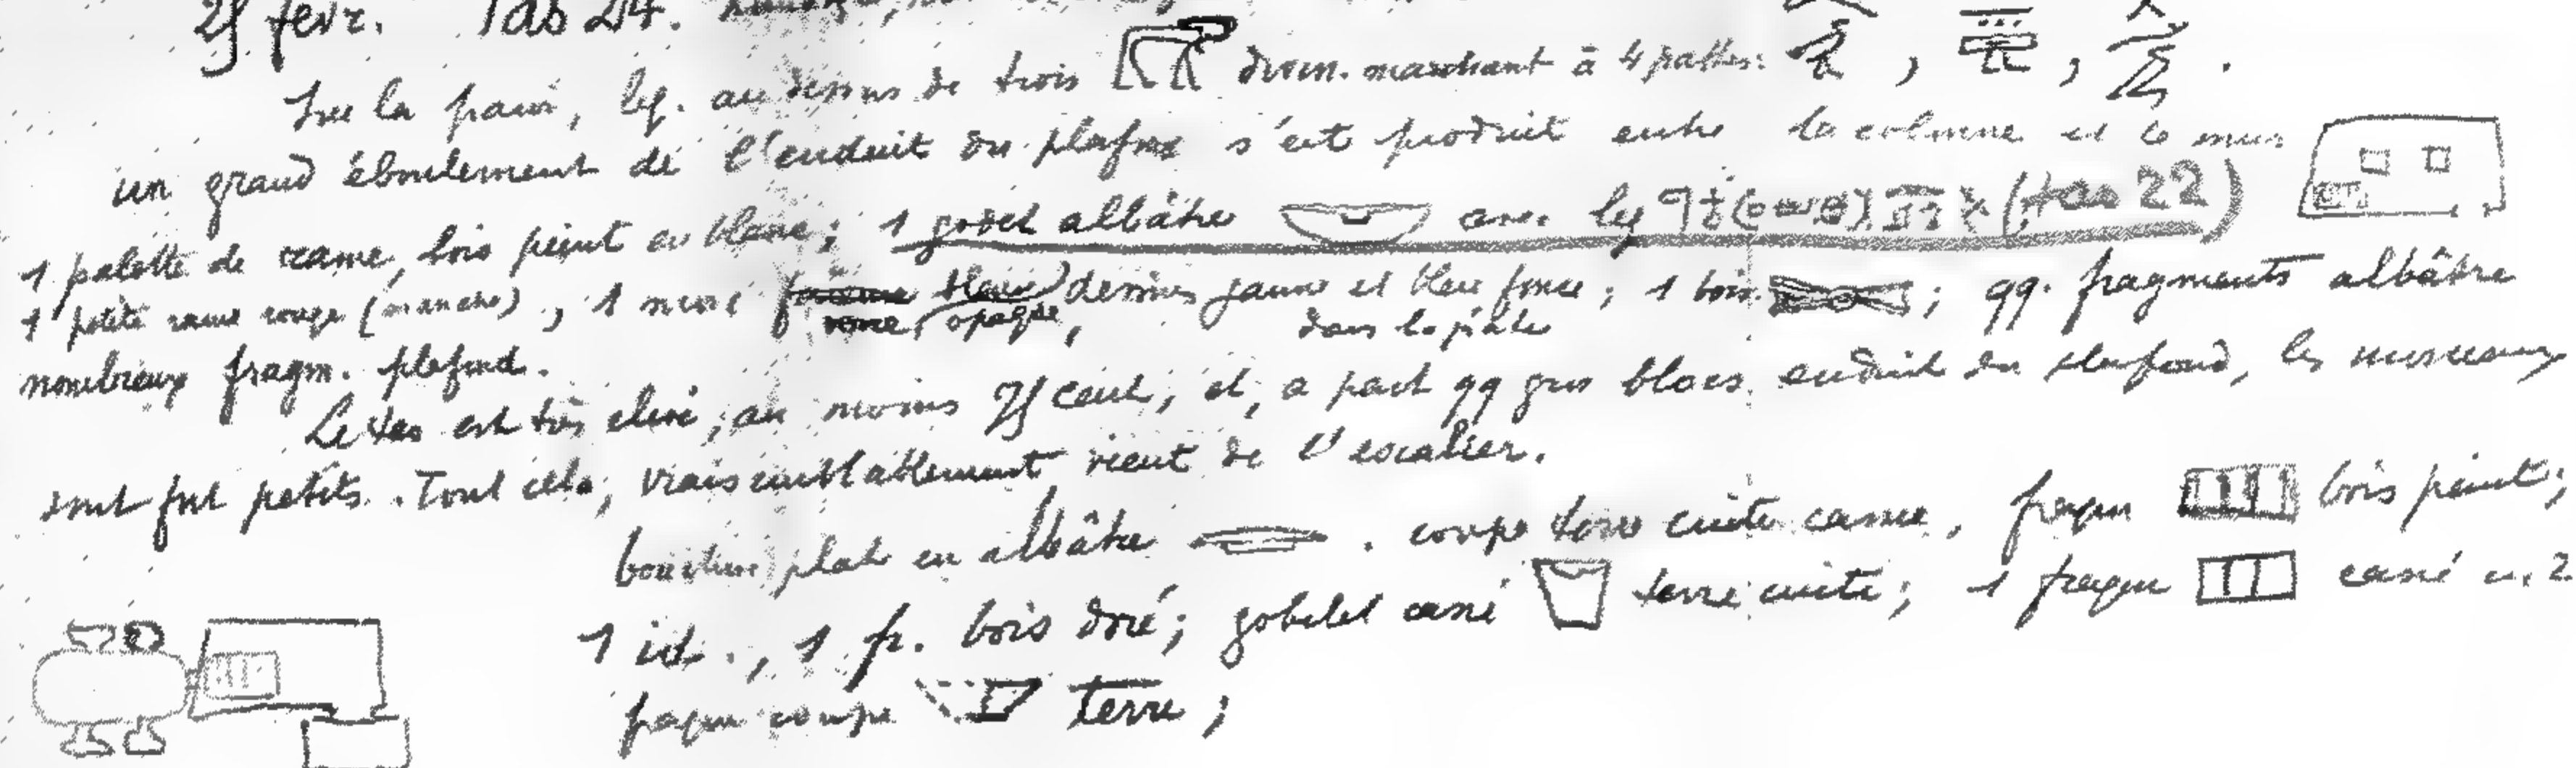 25 févr. Tas 24.
Sur la paroi, lég. au dessus de trois divin. marchant à 4 pattes: , , .
un grand éboulement de l'enduit du plafond s'est produit entre la colonne et le mur
1 palette de rame, bois peint en blanc; 1 godet albâtre avec lég (tas 22)
1 petite rame rouge (manche), 1 opaque, dessins jaune et bleu foncé; 1 bois ; qq. fragments albâtre
nombreux fragm. plafond. dans la piste
Le tas est très élevé, au moins 75 cent, et, à part qq gros blocs enduit du plafond, les morceaux
sont fort petits. Tout cela, vraisemblablement vient de l'escalier.
plat en albâtre . coupe terre cuite cassée, fragm bois peint;
1 id., 1 fr. bois doré; gobelet cassé terre cuite; 1 fragm cassé en 2
fragm coupe terre;